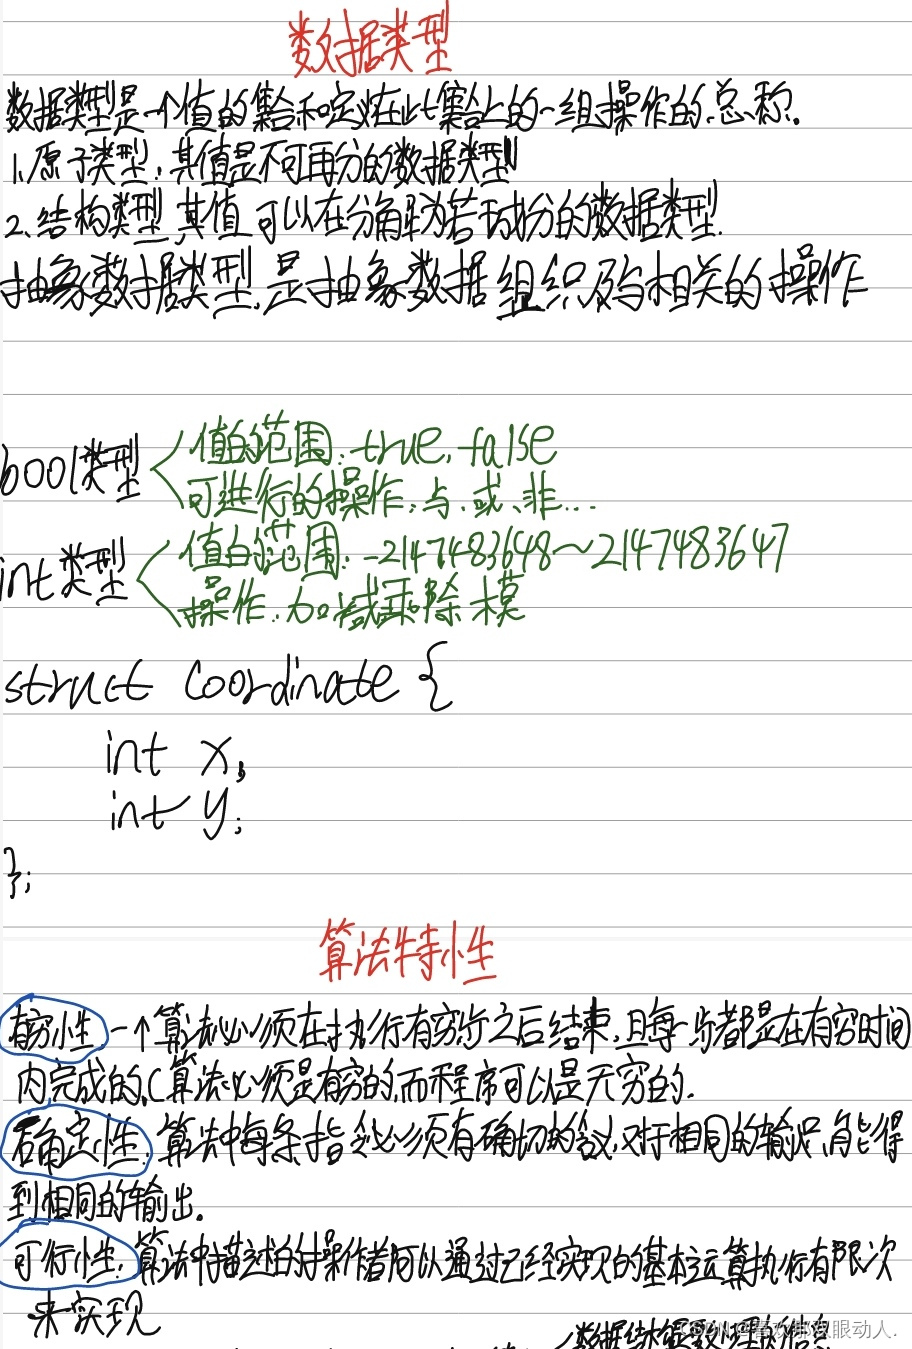 数据类型
数据类型是一个值的集合和定义在此集合上的一组操作的总称.
1.原子类型:其值是不可再分的数据类型
2.结构类型,其值可以在分解为若干成分的数据类型.
抽象数据类型,是抽象数据组织及与相关的操作
bool类型
值的范围:true,false
可进行的操作:与、或、非...
int类型
值的范围:-2147483648~2147483647
操作:加减乘除模
struct Coordinate {
int x;
int y;
};
算法特性
有穷性 一个算法必须在执行有穷步之后结束,且每一步都是在有穷时间
内完成的.(算法必须是有穷的,而程序可以是无穷的.
确定性:算法中每条指令必须有确切的含义,对于相同的输入只能得
到相同的输出.
可行性:算法中描述的操作都可以通过已经实现的基本运算执行有限次
来实现
数据结构
CSDN @喜欢那双眼动人.